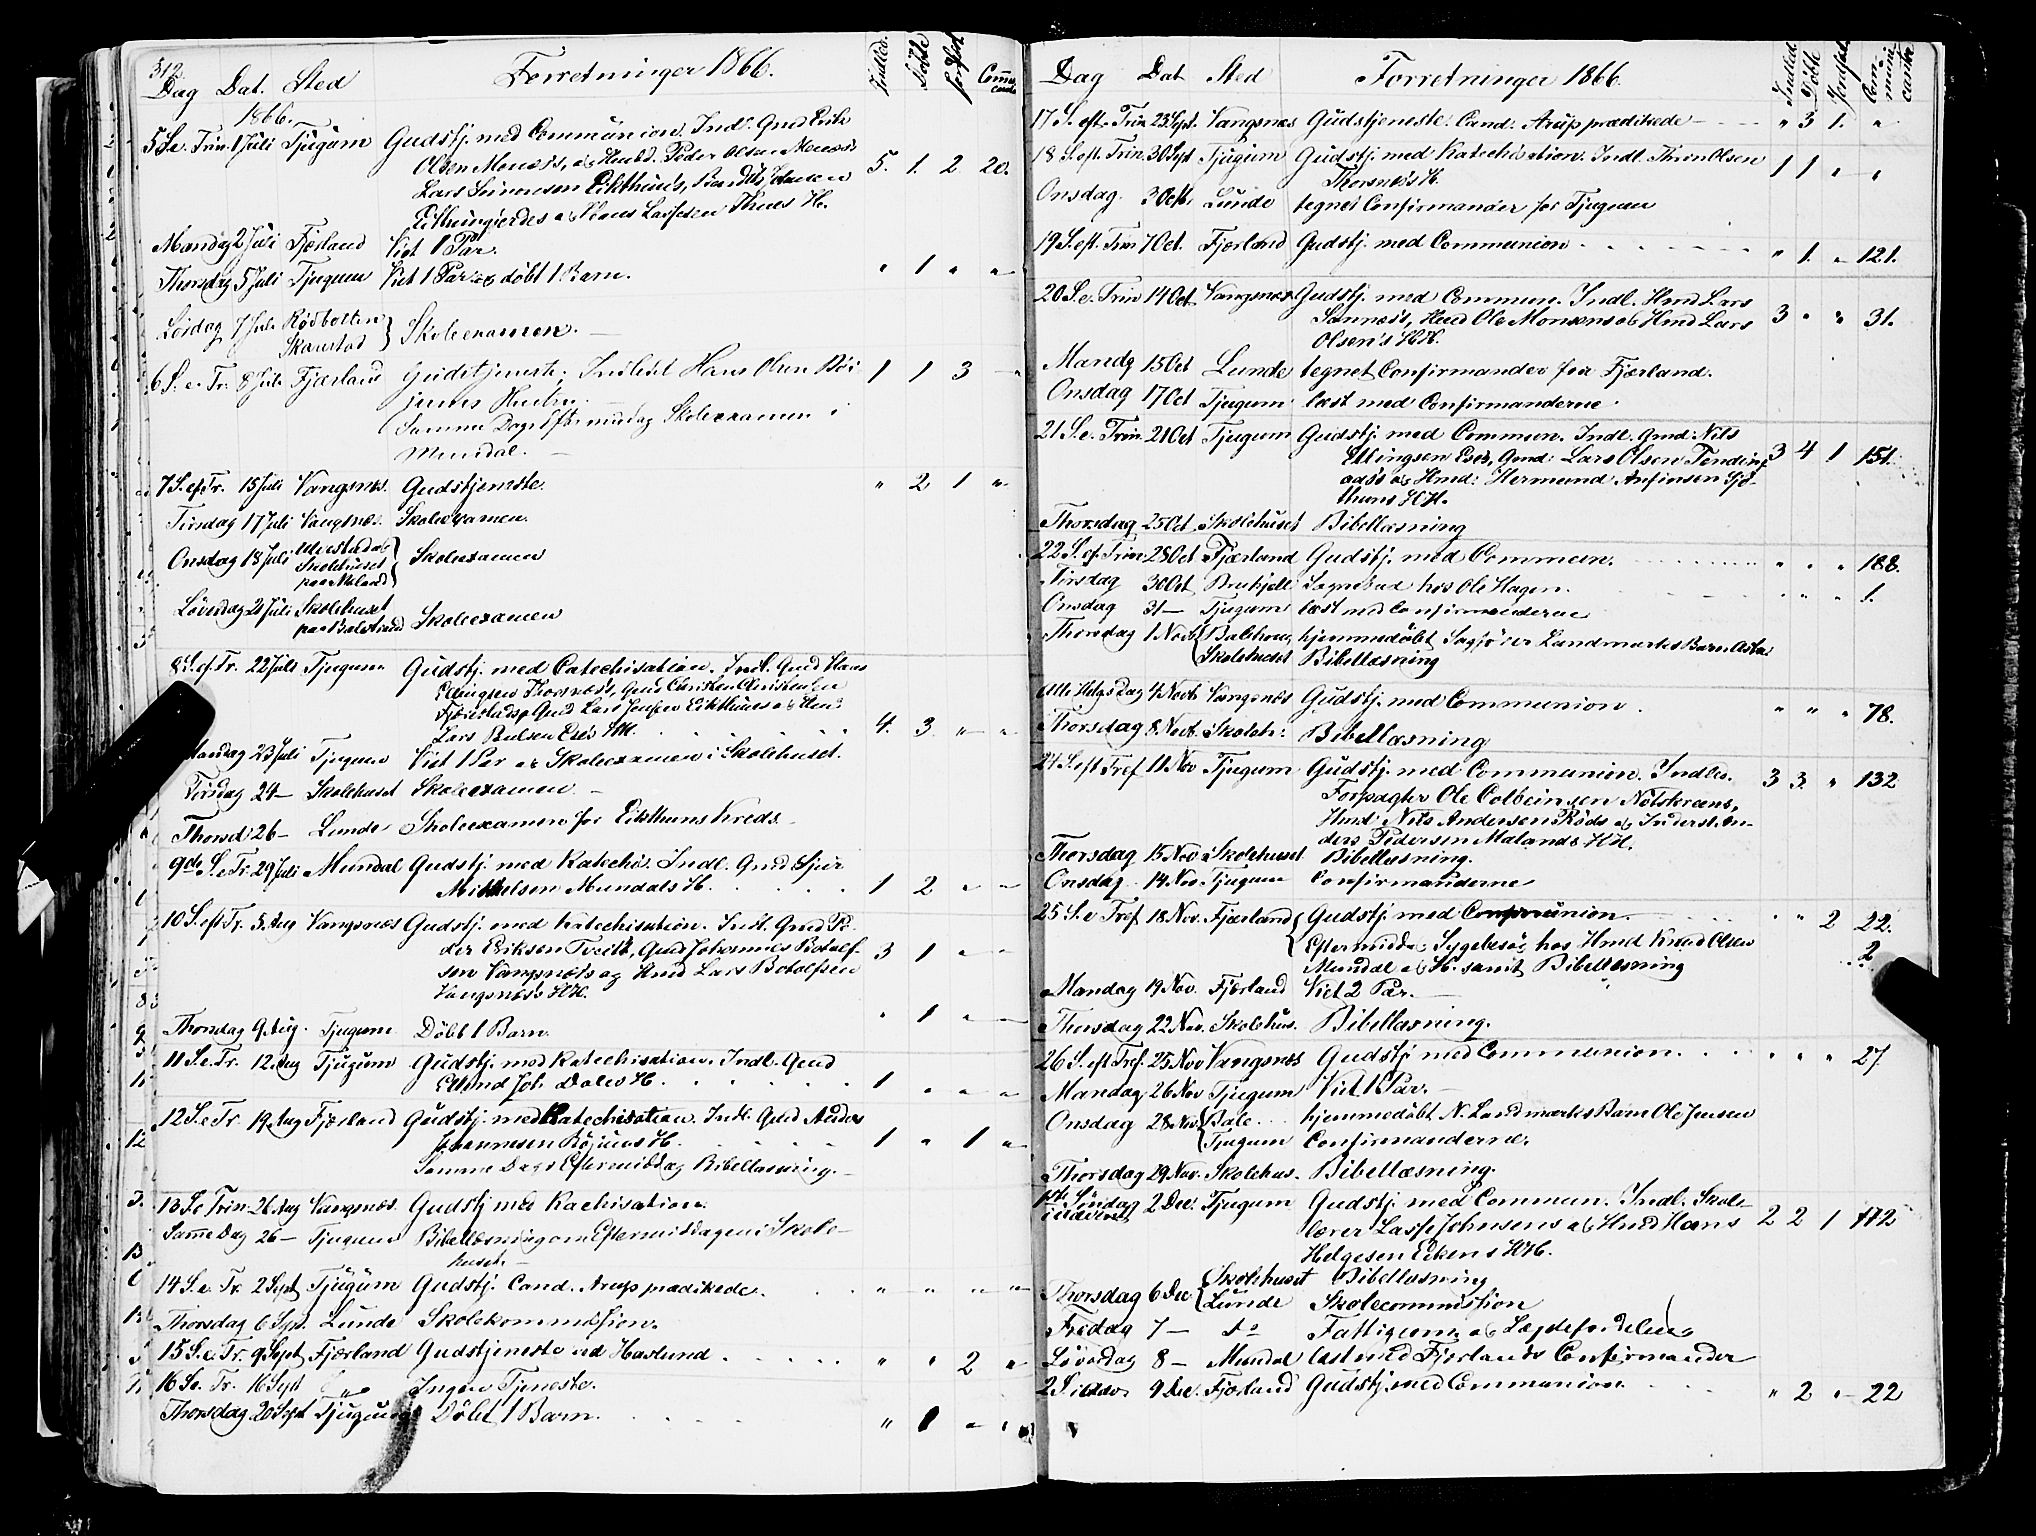 312.
Dag Dat. Sted Forretninger 1866. Indled. Døbte Jordfst. Communicanter
1866.
5 S.e. Trin. 1 Juli Tjugum Gudstj. med Communion. Indl. Gmd Erik
Olsen Menæs's, og Huusbd. Peder Olsen Menæs's 5. 1. 2 20.
Lars Simonsen Eikthuns,
og Lassesen Thues H.
Mandag 2 Juli Fjærland Viet 1 Par.
Thorsdag 5 Juli Tjugum Viet 1 Par og døbt 1 Barn. " 1 " "
Løsdag 7 Juli Rødbotten
Skaustad Skoleexamen.
6 S. e. Tr. 8 Juli Fjærland Gudstjeneste; Indledet Hans Olsen Bøi- 1 1 3 "
jums Hustru.
Samme Dags Eftermiddag Skoleexamen i
Mundal.
7 S. ef. Tr. 15 Juli Vangsnæs. Gudstjeneste. " 2 1 "
Tirsdag 17 Juli Vangsnæs. Skoleexamen.
Onsdag 18 Juli
Skolehuset
paa Maland Skoleexamen
Løverdag 21 Juli Skolehuset
paa Balestrand Skoleexamen
8 S. ef. Tr. 22 Juli Tjugum Gudstj. med Catechisation. Indl. Gmd Hans
Ellingsen Thorsnæs's, Gmd Christen Christensen
Fjærestads, Gmd Lars Jensen Eikthuns og Hmd
Lars Poulsen Eses HH. 4. 3. " "
Mandag 23 Juli Tjugum Viet 1 Par og Skoleexamen i Skolehuset.
Tirsdag 24 — Skolehuset Skoleexamen
Thorsd. 26 — Lunde Skoleexamen for Eikthuns Kreds.
9de S. e Tr. 29 Juli Mundal Gudstj. med Katechis. Indl. Gmd Sjur
Mikkelsen Mundals H. 1 2 " "
10 S. eft Tr. 5 Aug Vangsnæs Gudstj. med Katechisation. Indl. Gmd Pe-
der Eriksen Tveit's, Gmd Johannes Botolf- 3 1 " "
sen Vangsnæs's og Hmd Lars Botolfsen
Vangsnæs's HH.
Thorsdag 9 Aug. Tjugum Døbt 1 Barn. " 1 " "
11 S. e. Tr. 12 Aug Tjugum Gudstj. med Katechisation. Indl. Gmd
Ellend Joh. Dales H. 1 " " "
12 S. e Tr. 19 Aug Fjærland Gudstj. med Katechisation. Indl. Gmd Anders
Johannesen Bøjums H. 1 " 1 "
Samme Dags Eftermiddag Bibellæsning.
13 S. e Trin. 26 Aug Vangsnæs. Gudstj med Kachisation.
Samme Dag 26 — Tjugum Bibellæsning om Eftermiddagen i Skole-
huset.
14 S. e. Tr. 2 Sept Tjugum Gudstj. Cand. Arup prædikede. " " " "
Thorsdag 6 Sept. Lunde Skolekommission.
15 S. e. Tr. 9 Sept Fjærland Gudstjeneste ved Haslund. " " 2 "
16 S. e. Tr. 16 Sept " Ingen Tjeneste.
Thorsdag. 20 Sept Tjugum Døbt 1 Barn. " 1 " "
Dag Dat Sted Forretninger 1866. Indled Døbte Jordfst Communicanter
17 S. eft. Trin 23 Sept. Vangsnæs Gudstjeneste. Cand: Arup prædikede " 3 1. "
18 S. eft. Trin. 30 Sept Tjugum Gudstj. med Katechisation. Indl. Olsen
Thorsnæs's H. 1 1 " "
Onsdag 3 Octb. Lunde tegnet Confirmander for Tjugum
19 S. eft. Trin 7 Oct. Fjærland Gudstj. med Communion " 1. " 121.
20 S. e. Trin 14 Oct. Vangsnæs Gudstj. med Commun. Indl. Hmd Lars
Sannæs's, Hmd Ole Monsens og Hmd Lars 3 " " 31.
Olsen's HH.
Mandg 15 Oct Lunde tegnet Confirmander for Fjærland.
Onsdag 17 Oct Tjugum læst med Confirmanderne.
21 S. e. Trin. 21 Oct Tjugum Gudstj. med Commun. Indl. Gmd: Nils
Ellingsen Eses, Gmd: Lars Olsen 3 4 1 151.
og Hmd: Hermund Anfinsen
thuns HH.
Thorsdag 25 Oct. Skolehuset Bibellæsning
22 S. ef. Trin. 28 Oct Fjærland Gudstj. med Commun. " " " 188.
Tirsdag 30 Oct hos Ole Hagen. " " " 1.
Onsdag 31 — Tjugum læst med Confirmanderne
Thorsdag 1 Novb. Balehoug hjemmedøbt Sagfører Landmarks Barn
Skolehuset Bibellæsning
Alle Helgsdag 4 Novb. Vangsnæs Gudstj. med Communion. " " " 78.
Thorsdag 8 Novb. Skoleh: Bibellæsning
24 S. eft Tref 11 Nov Tjugum Gudstj. med Communion. Indled. 3 3. " 132
Forpagter Ole Colbeinsen
Hmd: Nils Andersen Røds og Inderst An-
ders Pedersen Malands HH.
Thorsdag 15 Nov Skolehuset Bibellæsning.
Onsdag 14 Nov Tjugum Confirmanderne
25 S. e Tref 18 Nov. Fjærland Gudstj. med Communion. " " 2 22.
Eftermiddag Sygebesøg hos Hmd Knud Olsen 2
Mundal og H. samt Bibellæsning
Mandag 19 Nov. Fjærland Viet 2 Par.
Thorsdag 22 Nov. Skolehus. Bibellæsning.
26 S. eft Tref. 25 Nov Vangsnæs Gudstj med Communion. " " " 27.
Mandag 26 Nov Tjugum Viet 1 Par.
Onsdag 28 Nov. Bale hjemmedøbt N. Landmarks Barn Ole Jensen
Tjugum Confirmanderne.
Thorsdag 29 Nov. Skolehus. Bibellæsning.
1ste Søndag 2 Dec. Tjugum Gudstj. med Commun. Indl. Skole-
i advent lærer Lasse Johnsens og Hmd Hans 2 2 1 112
Helgesen Eskens HH.
Thorsdag 6 Dec. Skolehuset Bibellæsning
Lunde Skolecommission
Fredag 7 — do Fattigcom. og Lægdefordeling
Løverdag 8 — Mundal læst med Fjærlands Confirmander
2 S i adv. 9 Dec. Fjærland Gudstj. med Communion. " 2 " 22